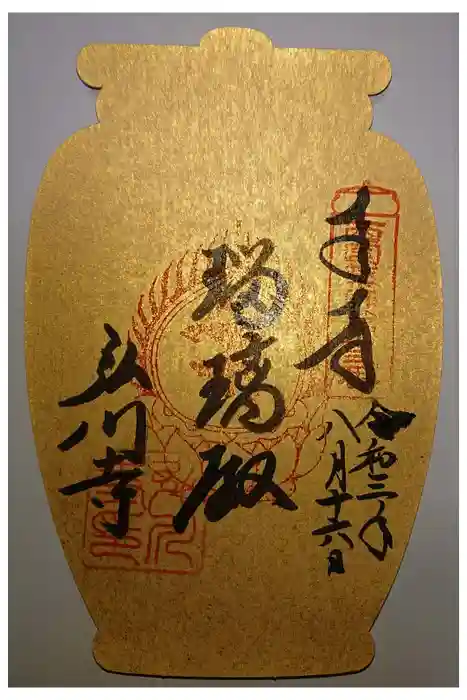 奉拝
令和二年
八月十六日
瑠璃殿
弘川寺